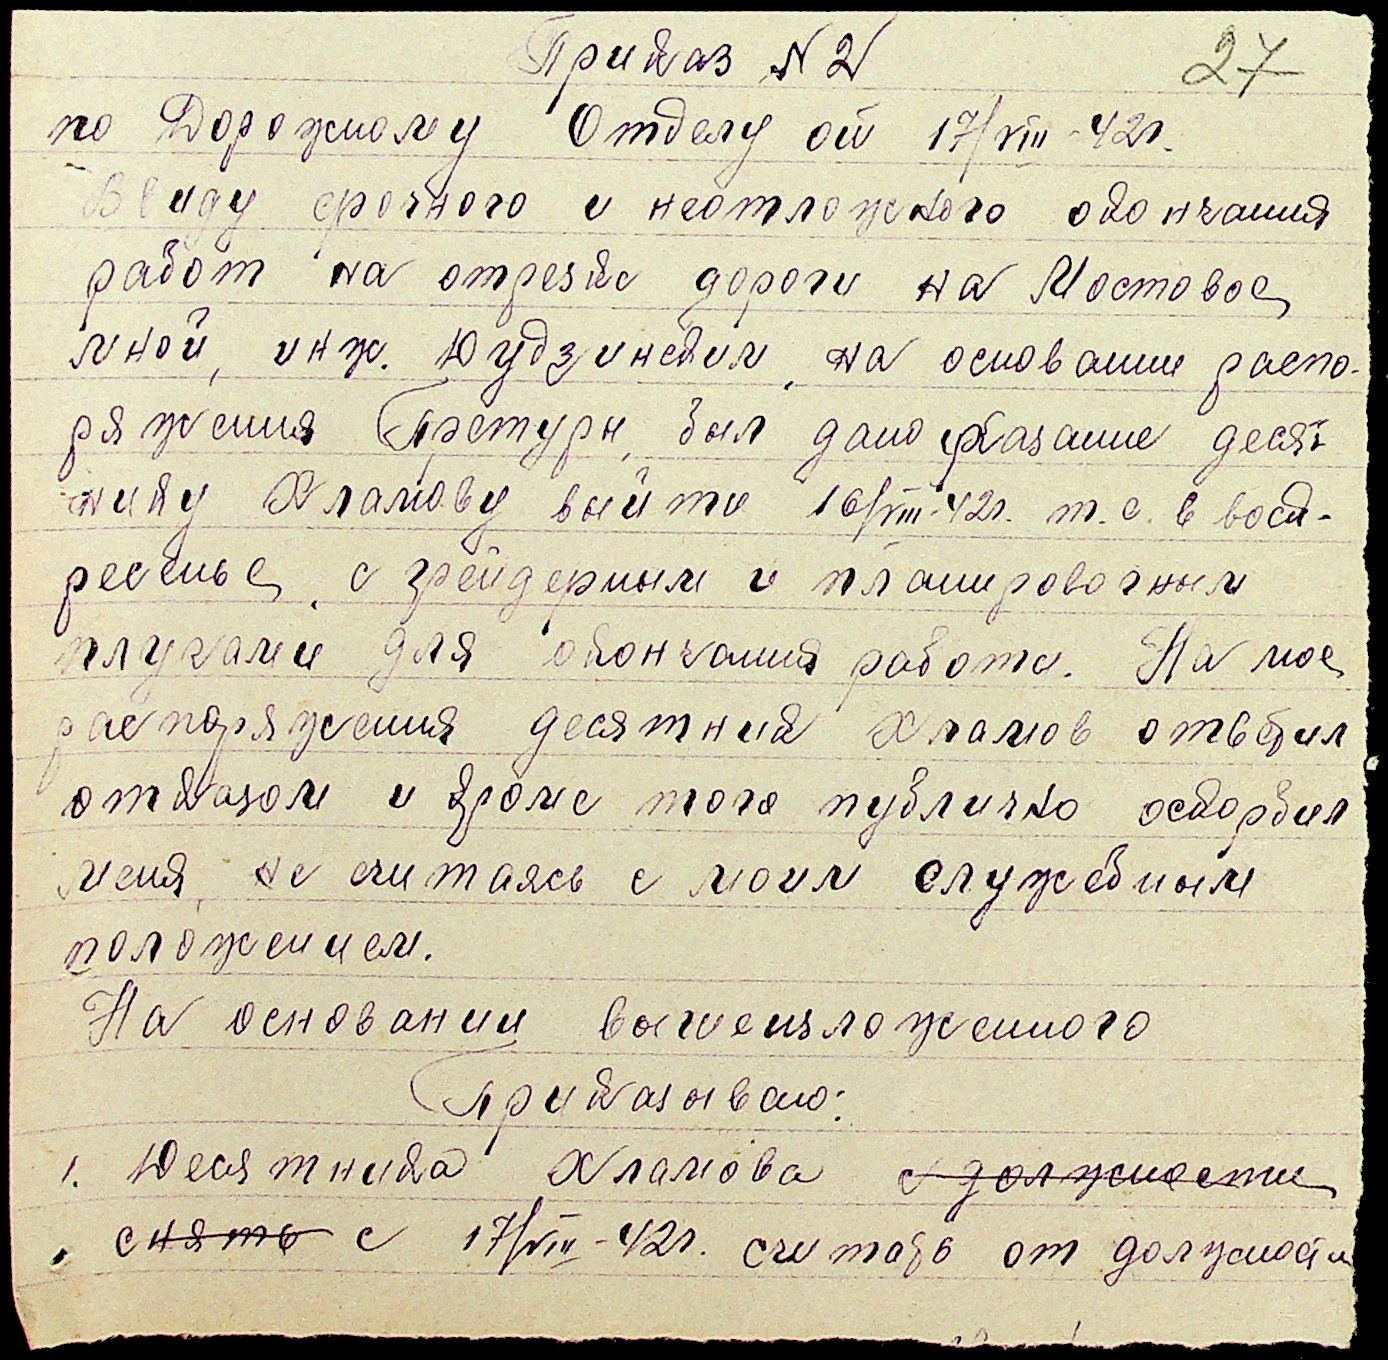 Приказ N 2
27
по Дорожному Отделу от 17/VIII-42г.
Ввиду срочного и неотложного окончания
работ на отрезке дороги на Мостовое,
мной, инж. Юудзинским, на основании распо-
ряжения Претуры, был дано указание десят-
нику Хламову выйти 16/VIII-42г. т.е. в воск-
ресенье, с грейдерным и планировочным
плугами для окончания работы. На мое
распоряжения десятник Хламов ответил
отказом и кроме того публично оскорбил
меня, не считаясь с моим служебным
положением.
На основании вышеизложенного
Приказываю:
1. Десятника Хламова с должности
снять с 17/VIII-42г. считать от должности